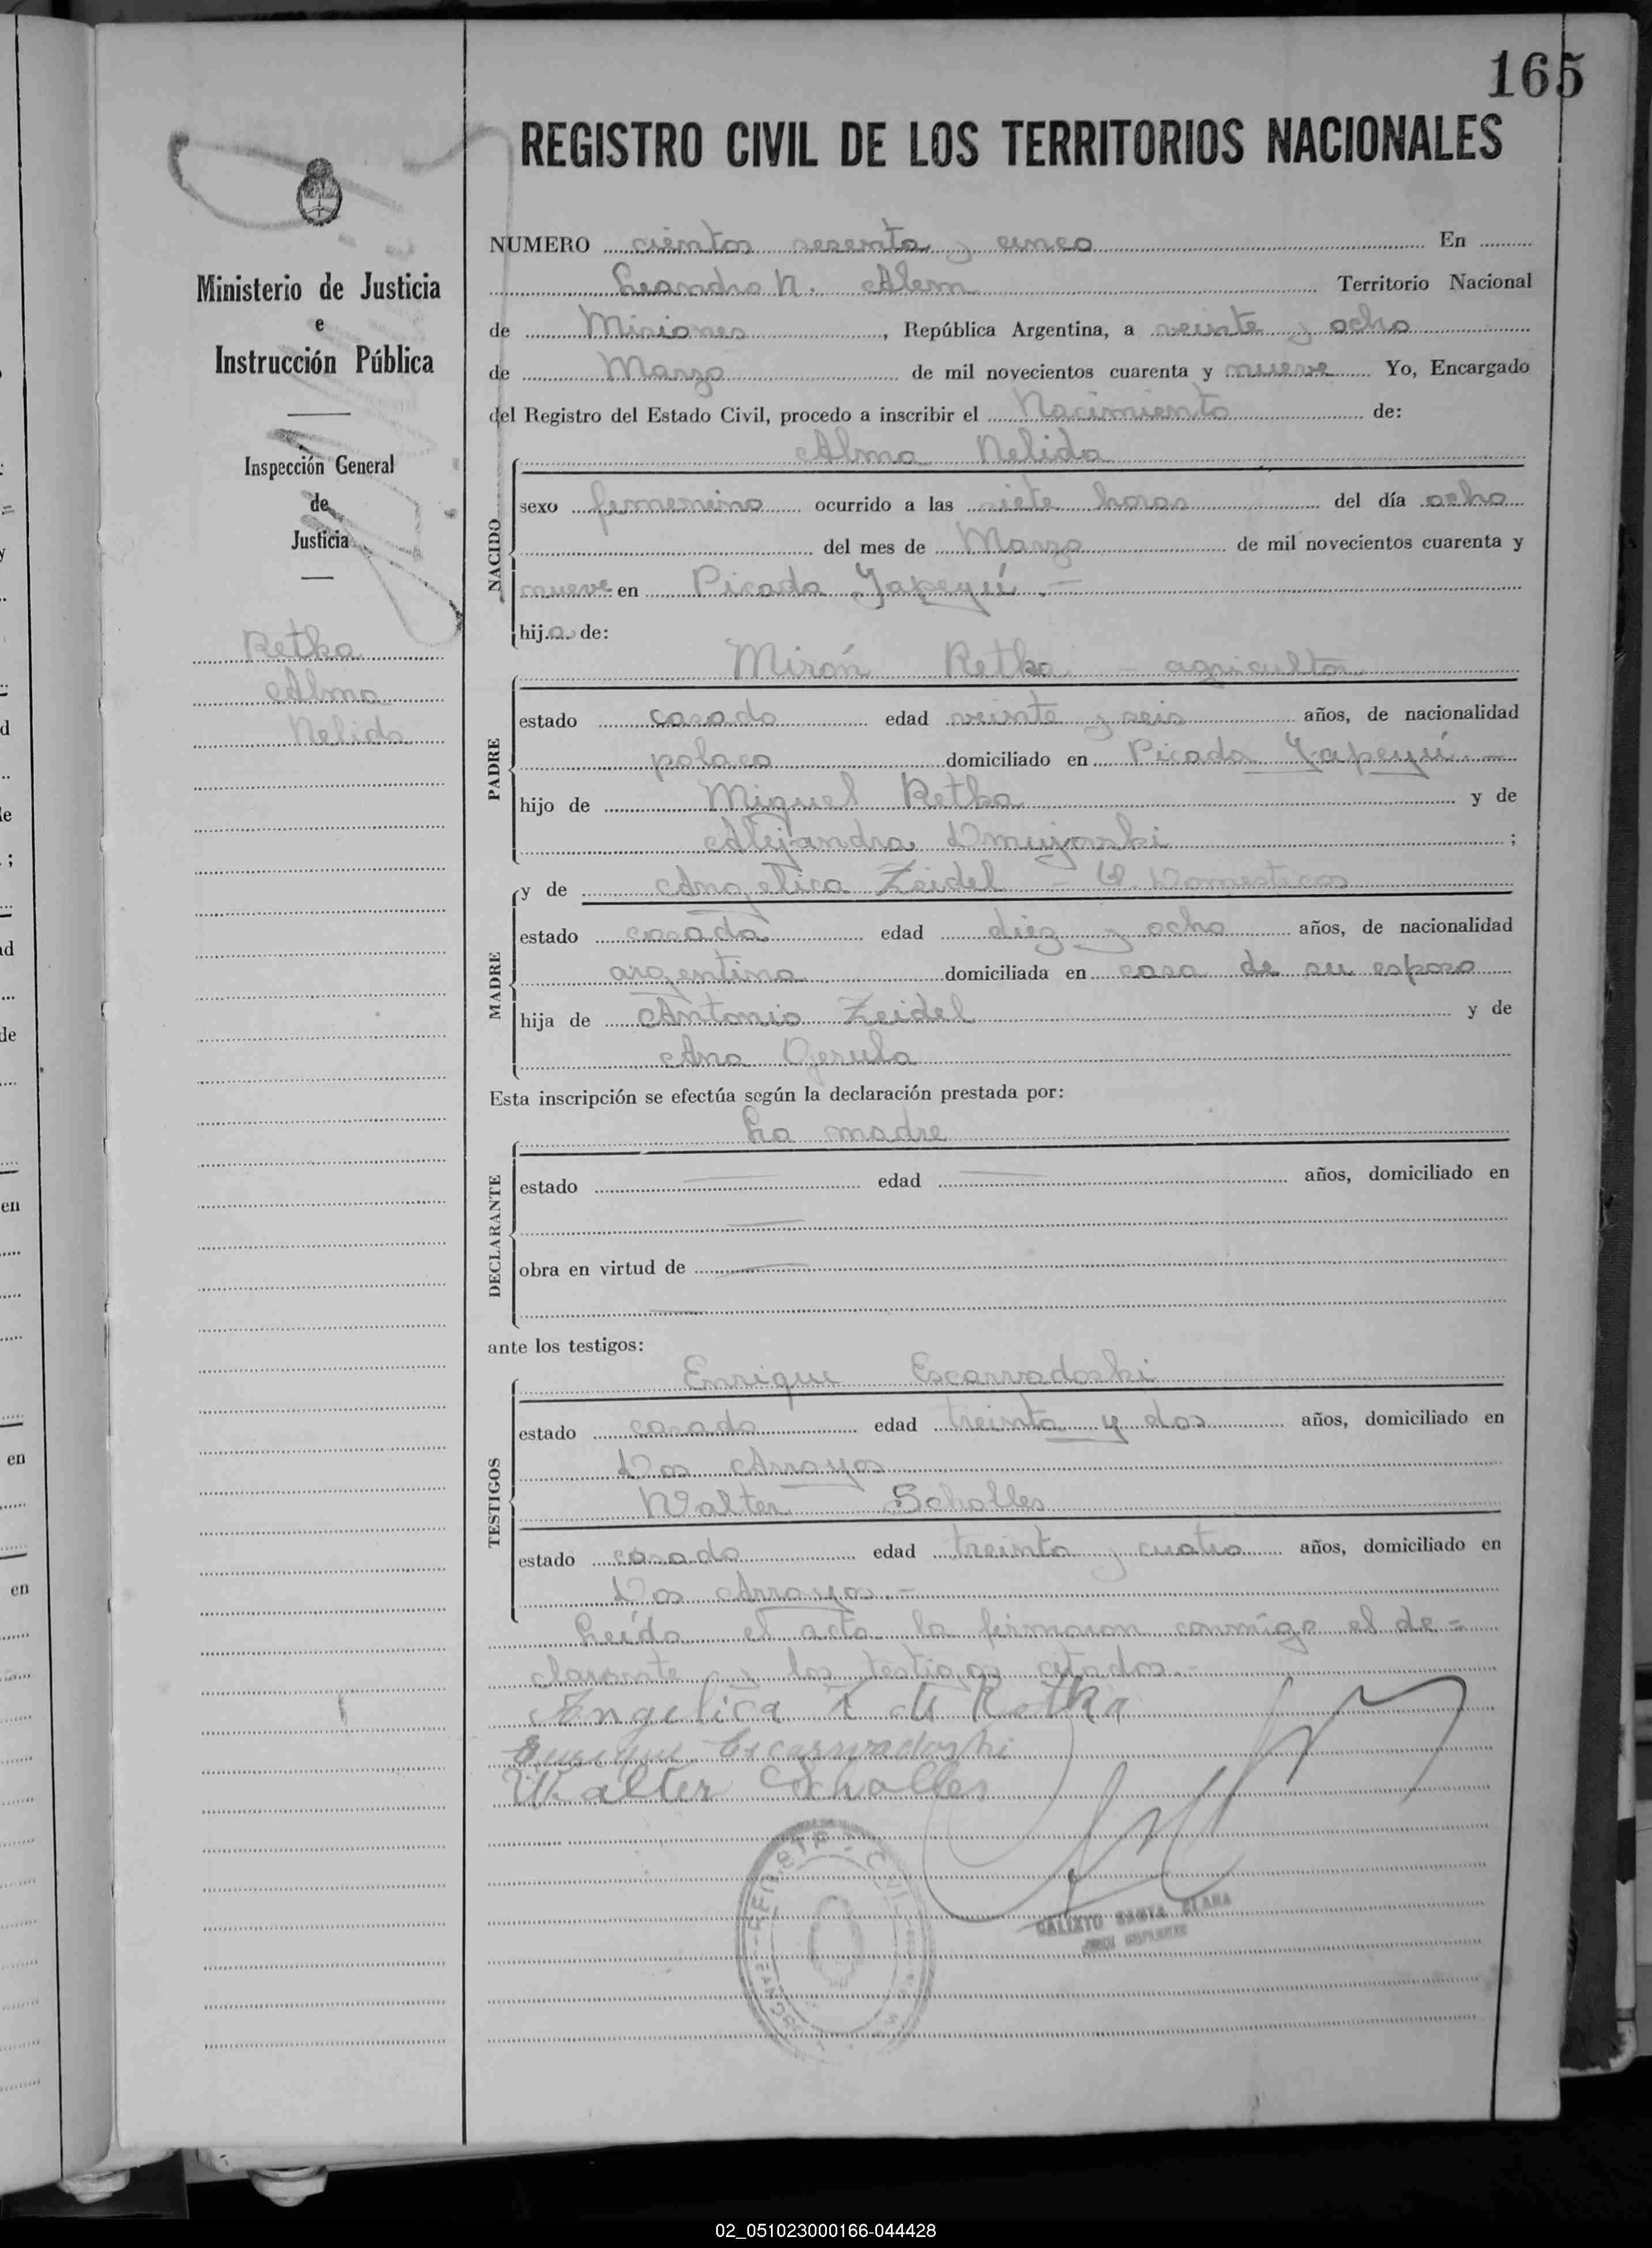 165
REGISTRO CIVIL DE LOS TERRITORIOS NACIONALES
Ministerio de Justicia
e
Instrucción Pública
Inspección General
de
Justicia
Retka
Alma
Nelida
NUMERO cientos sesenta y cinco En
Leandro N. Alem Territorio Nacional
de Misiones, República Argentina, a veinte y ocho
de Marzo de mil novecientos cuarenta y nueve Yo, Encargado
del Registro del Estado Civil, procedo a inscribir el Nacimiento de:
NACIDO
Alma Nelida
sexo femenino ocurrido a las siete horas del día ocho
del mes de Marzo de mil novecientos cuarenta y
nueve en Picada Yapeyú.—
hija de:
PADRE
Mirón Retka - agricultor
estado casado edad veinte y seis años, de nacionalidad
polaco domiciliado en Picada Yapeyú.—
hijo de Miguel Retka y de
Alejandra ;
MADRE
y de Angelica Zeidel - Q. Domesticos
estado casada edad diez y ocho años, de nacionalidad
argentina domiciliada en casa de su esposo
hija de Antonio Zeidel y de
Ana
Esta inscripción se efectúa según la declaración prestada por:
DECLARANTE
La madre
estado — edad — años, domiciliado en
—
obra en virtud de —
—
ante los testigos:
TESTIGOS
Enrique Escarvadoski
estado casado edad treinta y dos años, domiciliado en
Dos Arroyos
Walter Scholles
estado casado edad treinta y cuatro años, domiciliado en
Dos Arroyos.-
Leída el acta la firmaron conmigo el de=
clarante y los testigos citados.-
Angelica Z de Retka
Enrique Escarvadoski
Walter Scholles
CALIXTO SANTA CLARA
JUEZ SUPLENTE
02_051023000166-044428